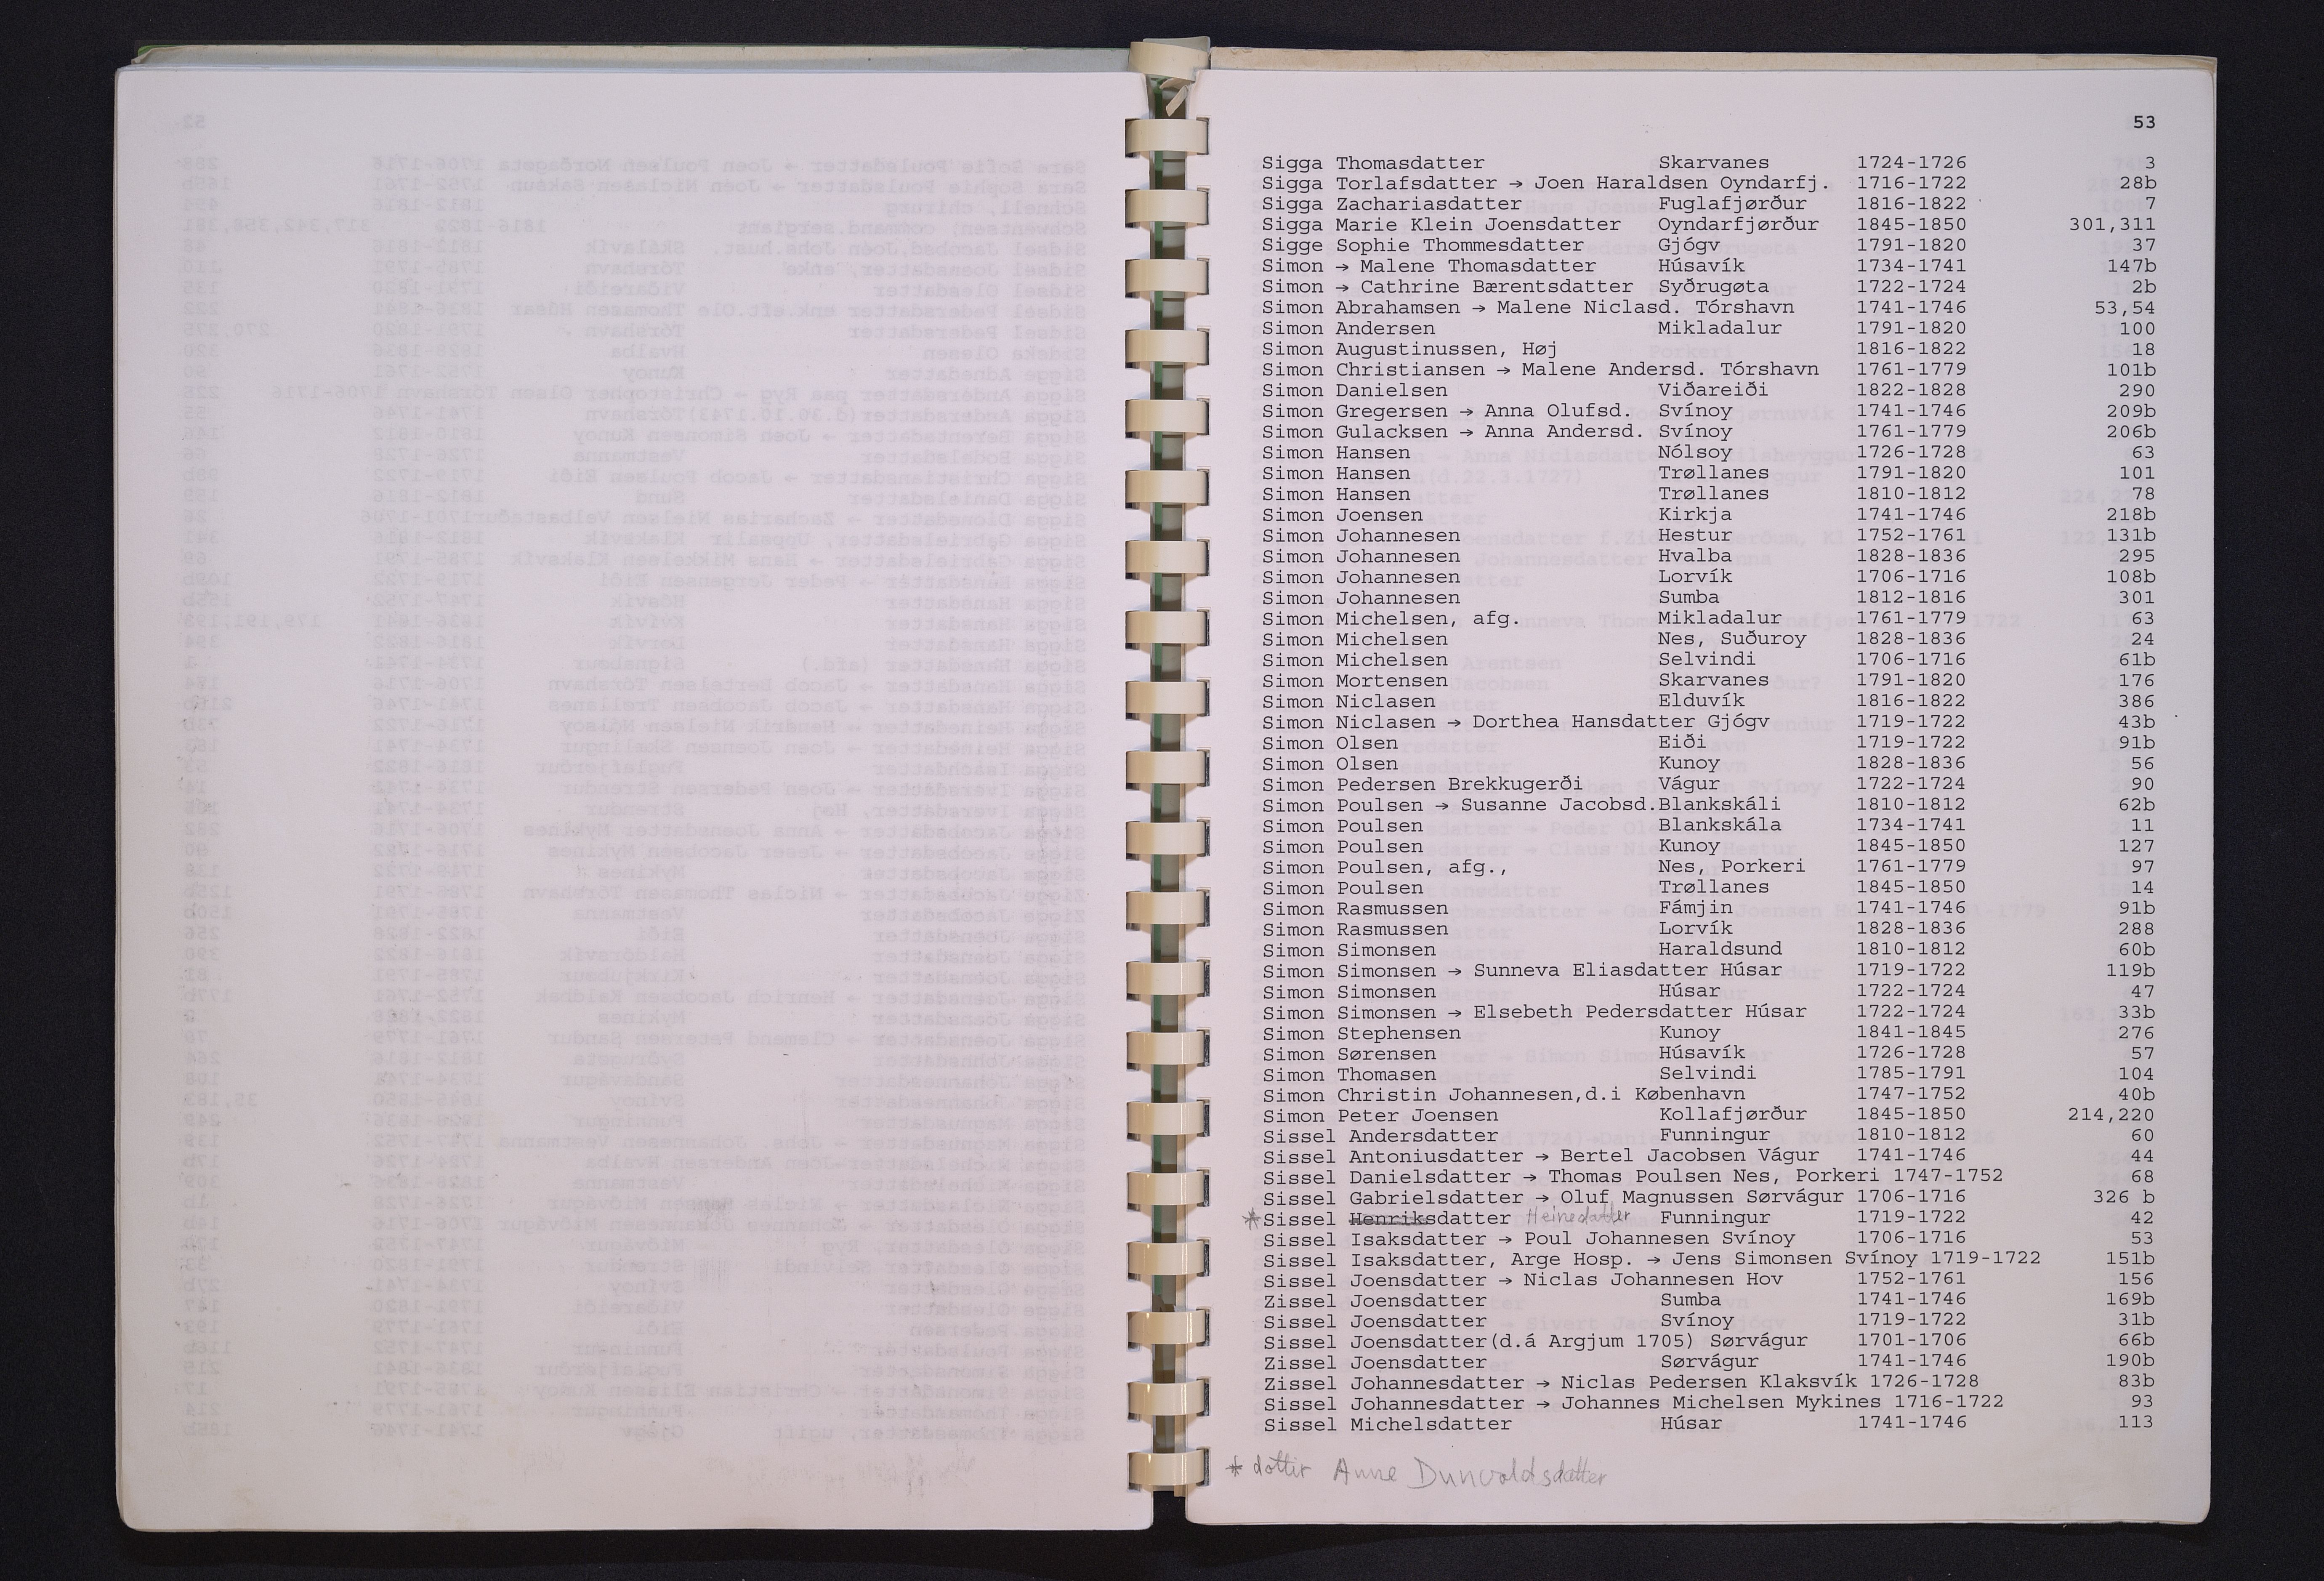 53
Sigga Thomasdatter Skarvanes 1724-1726 3
Sigga Torlafsdatter → Joen Haraldsen Oyndarfj. 1716-1722 28b
Sigga Zachariasdatter Fuglafjørður 1816-1822 7
Sigga Marie Klein Joensdatter Oyndarfjørður 1845-1850 301,311
Sigge Sophie Thommesdatter Gjógv 1791-1820 37
Simon → Malene Thomasdatter Húsavík 1734-1741 147b
Simon → Cathrine Bærentsdatter Syðrugøta 1722-1724 2b
Simon Abrahamsen → Malene Niclasd. Tórshavn 1741-1746 53,54
Simon Andersen Mikladalur 1791-1820 100
Simon Augustinussen, Høj 1816-1822 18
Simon Christiansen → Malene Andersd. Tórshavn 1761-1779 101b
Simon Danielsen Viðareiði 1822-1828 290
Simon Gregersen → Anna Olufsd. Svínoy 1741-1746 209b
Simon Gulacksen → Anna Andersd. Svínoy 1761-1779 206b
Simon Hansen Nólsoy 1726-1728 63
Simon Hansen Trøllanes 1791-1820 101
Simon Hansen Trøllanes 1810-1812 78
Simon Joensen Kirkja 1741-1746 218b
Simon Johannesen Hestur 1752-1761 131b
Simon Johannesen Hvalba 1828-1836 295
Simon Johannesen Lorvík 1706-1716 108b
Simon Johannesen Sumba 1812-1816 301
Simon Michelsen, afg. Mikladalur 1761-1779 63
Simon Michelsen Nes, Suðuroy 1828-1836 24
Simon Michelsen Selvindi 1706-1716 61b
Simon Mortensen Skarvanes 1791-1820 176
Simon Niclasen Elduvík 1816-1822 386
Simon Niclasen → Dorthea Hansdatter Gjógv 1719-1722 43b
Simon Olsen Eiði 1719-1722 91b
Simon Olsen Kunoy 1828-1836 56
Simon Pedersen Brekkugerði Vágur 1722-1724 90
Simon Poulsen → Susanne Jacobsd.Blankskáli 1810-1812 62b
Simon Poulsen Blankskála 1734-1741 11
Simon Poulsen Kunoy 1845-1850 127
Simon Poulsen, afg., Nes, Porkeri 1761-1779 97
Simon Poulsen Trøllanes 1845-1850 14
Simon Rasmussen Fámjin 1741-1746 91b
Simon Rasmussen Lorvík 1828-1836 288
Simon Simonsen Haraldsund 1810-1812 60b
Simon Simonsen → Sunneva Eliasdatter Húsar 1719-1722 119b
Simon Simonsen Húsar 1722-1724 47
Simon Simonsen → Elsebeth Pedersdatter Húsar 1722-1724 33b
Simon Stephensen Kunoy 1841-1845 276
Simon Sørensen Húsavík 1726-1728 57
Simon Thomasen Selvindi 1785-1791 104
Simon Christin Johannesen,d.i København 1747-1752 40b
Simon Peter Joensen Kollafjørður 1845-1850 214,220
Sissel Andersdatter Funningur 1810-1812 60
Sissel Antoniusdatter → Bertel Jacobsen Vágur 1741-1746 44
Sissel Danielsdatter → Thomas Poulsen Nes, Porkeri 1747-1752 68
Sissel Gabrielsdatter → Oluf Magnussen Sørvágur 1706-1716 326 b
* Sissel Henriksdatter Heinedatter Funningur 1719-1722 42
Sissel Isaksdatter → Poul Johannesen Svínoy 1706-1716 53
Sissel Isaksdatter, Arge Hosp. → Jens Simonsen Svínoy 1719-1722 151b
Sissel Joensdatter → Niclas Johannesen Hov 1752-1761 156
Zissel Joensdatter Sumba 1741-1746 169b
Sissel Joensdatter Svínoy 1719-1722 31b
Sissel Joensdatter(d.á Argjum 1705) Sørvágur 1701-1706 66b
Zissel Joensdatter Sørvágur 1741-1746 190b
Zissel Johannesdatter → Niclas Pedersen Klaksvík 1726-1728 83b
Sissel Johannesdatter → Johannes Michelsen Mykines 1716-1722 93
Sissel Michelsdatter Húsar 1741-1746 113
* dottir Anne Dunvoldsdatter